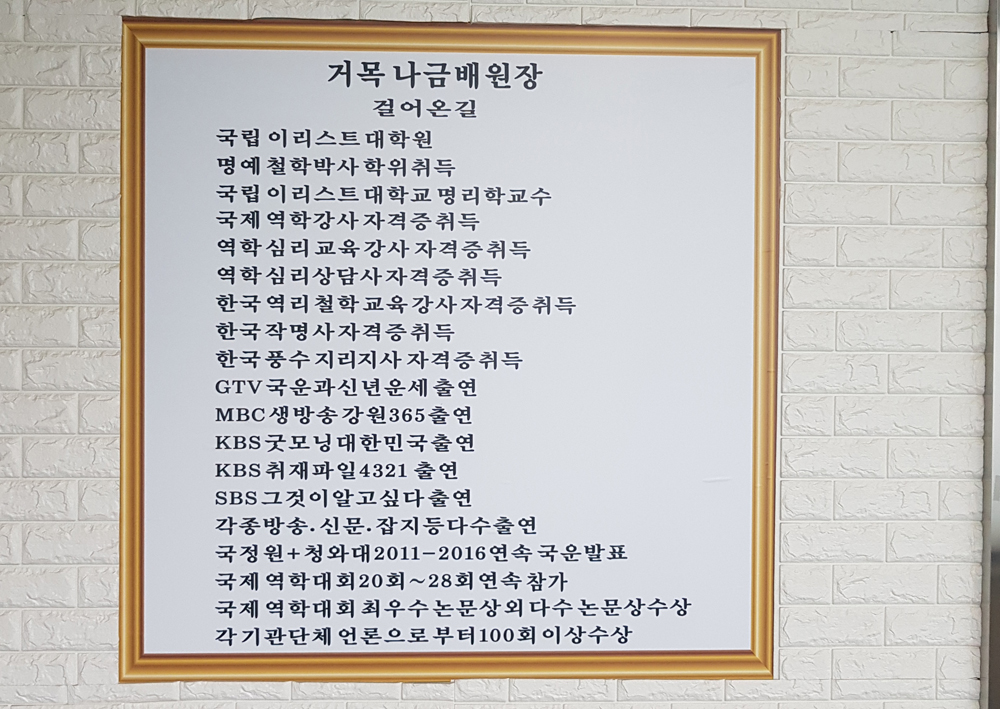 거목 나금배원장
걸어온길
국립 이리스트대학원
명예 철학박사 학위취득
국립 이리스트대학교 명리학교수
국제 역학강사 자격증취득
역학심리 교육강사 자격증취득
역학심리상담사자격증취득
한국 역리철학교육 강사자격증취득
한국작명사자격증취득
한국풍수지리지사 자격증취득
GTV 국운과신년운세출연
MBC 생방송강원365출연
KBS 굿모닝대한민국출연
KBS 취재파일4321 출연
SBS 그것이알고싶다출연
각종방송.신문.잡지등다수출연
국정원+청와대2011-2016연속 국운발표
국제 역학대회20회~28회연속참가
국제 역학대회 최우수논문상외 다수논문상수상
각기관단체 언론으로부터100회 이상수상